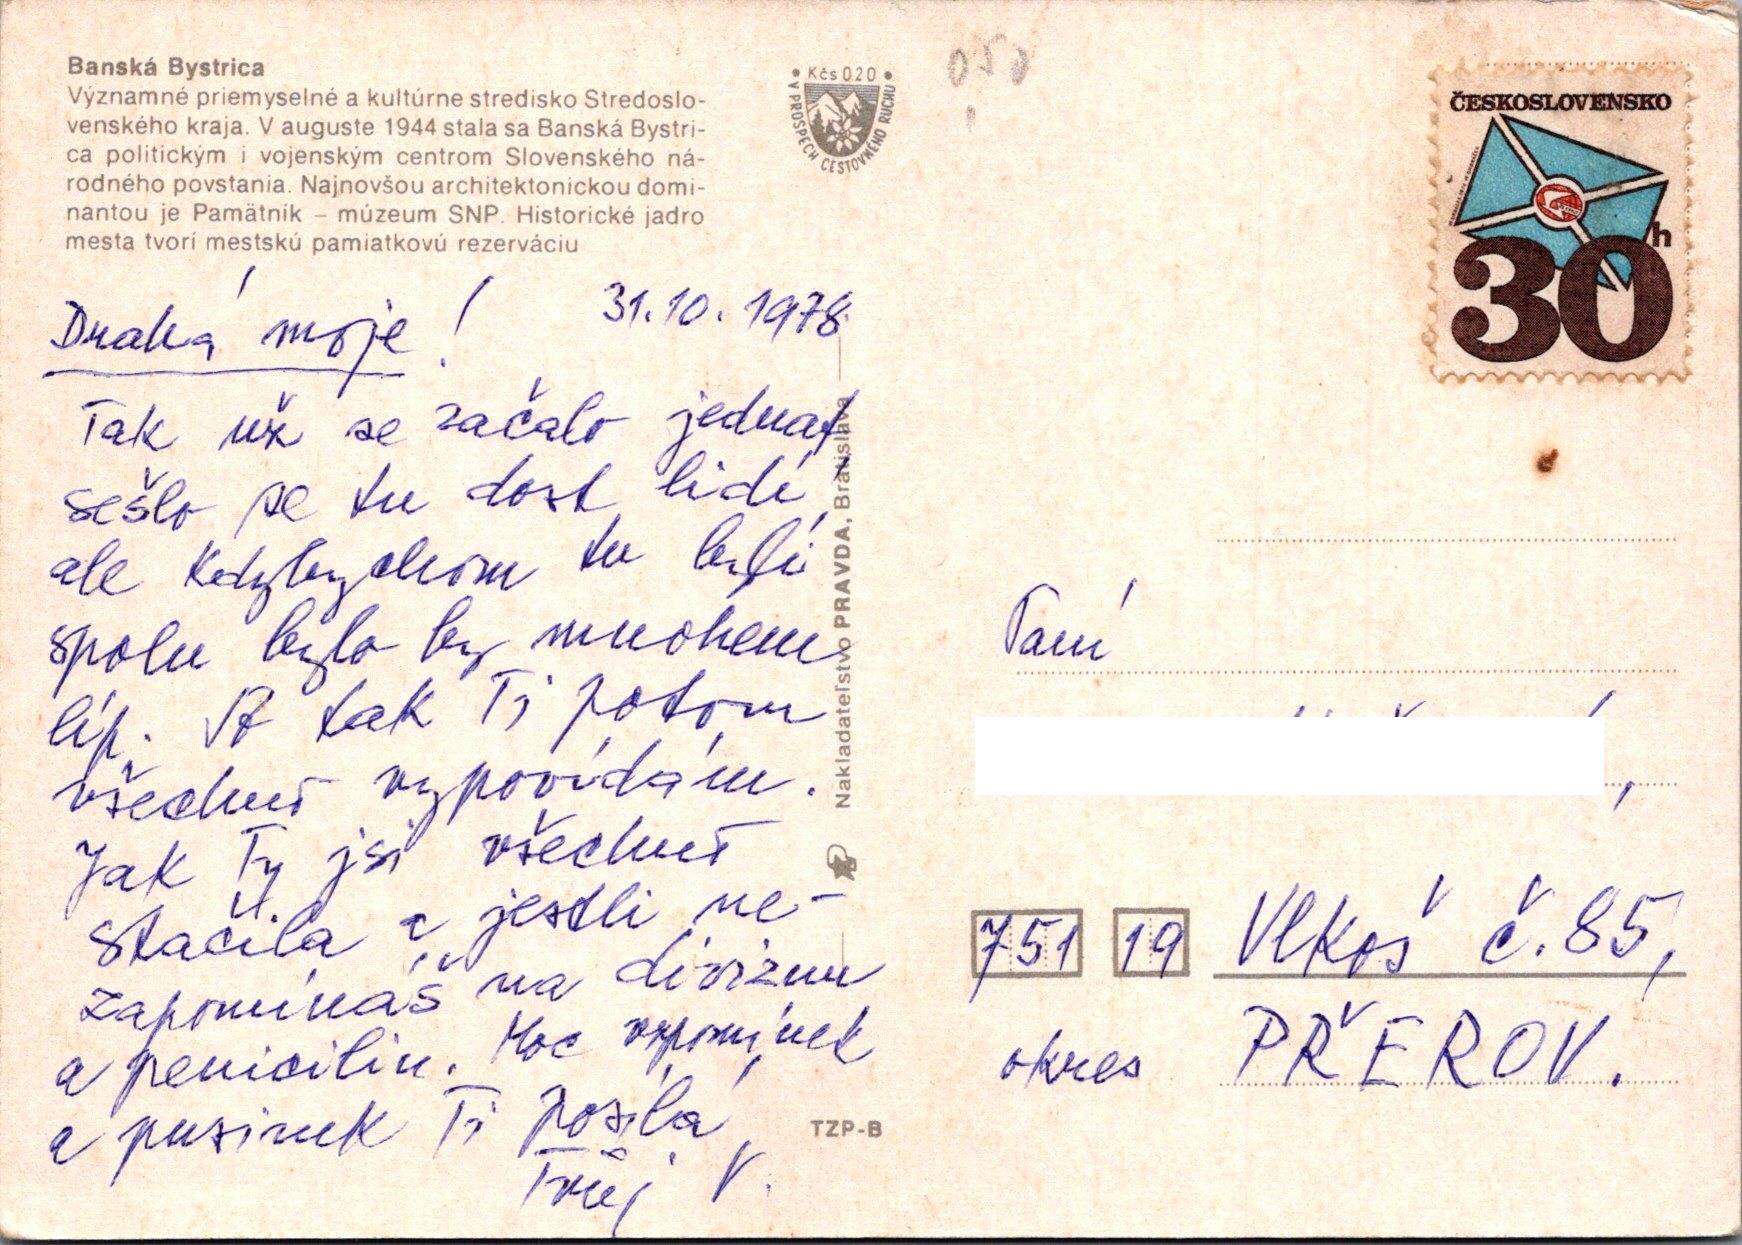 Banská Bystrica
Významné priemyselné a kultúrne stredisko Stredoslo-
venského kraja. V auguste 1944 stala sa Banská Bystri-
ca politickým i vojenským centrom Slovenského ná-
rodného povstania. Najnovšou architektonickou domi-
nantou je Pamätník – múzeum SNP. Historické jadro
mesta tvorí mestskú pamiatkovú rezerváciu
31.10.1978
Drahá moje!
Tak už se začalo jednat
sešlo se tu dost lidí,
ale kdybychom tu byli
spolu bylo by mnohem
líp. A tak Ti potom
všechno vypovídám.
Jak Ty jsi všechno
stačila a jestli ne-
zapomínáš na diviznu
a penicilin. Moc vzpomínek
a pusinek Ti posílá
Tvůj V.
Kčs 0.20
V PROSPECH CESTOVNÉHO RUCHU
Nakladateľstvo PRAVDA, Bratislava
TZP-B
ČESKOSLOVENSKO
30h
Paní
751 19 Vlkoš č. 85,
okres PŘEROV.